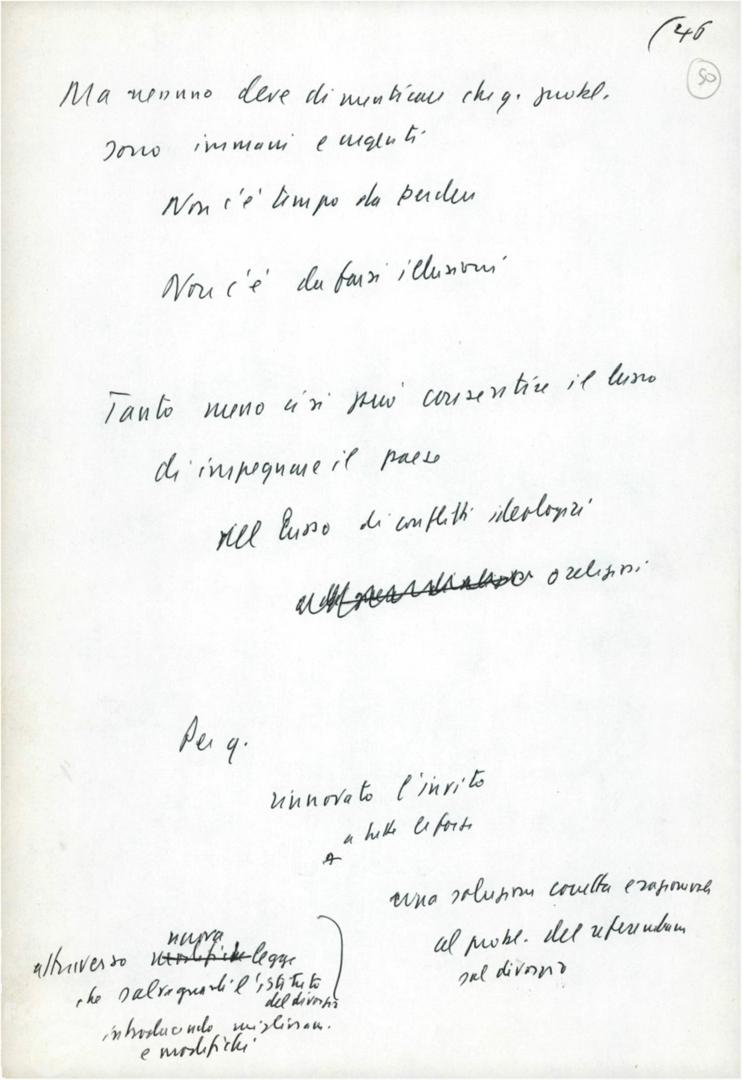 (46
50
Ma nessuno deve dimenticare che q. probl.
sono immani e urgenti
Non c'è tempo da perdere
Non c'è da farsi illusioni
Tanto meno ci si può consentire il lusso
di impegnare il paese
nell lusso di conflitti ideologici
o religiosi
Per q.
rinnovato l'invito
a tutte le forze
A
una soluzione corretta e ragionevole
al probl. del referendum
sul divorzio
nuova
attraverso modifiche legge
che salvaguardi l'istituto
del divorzio
introducendo miglioram.
e modifiche